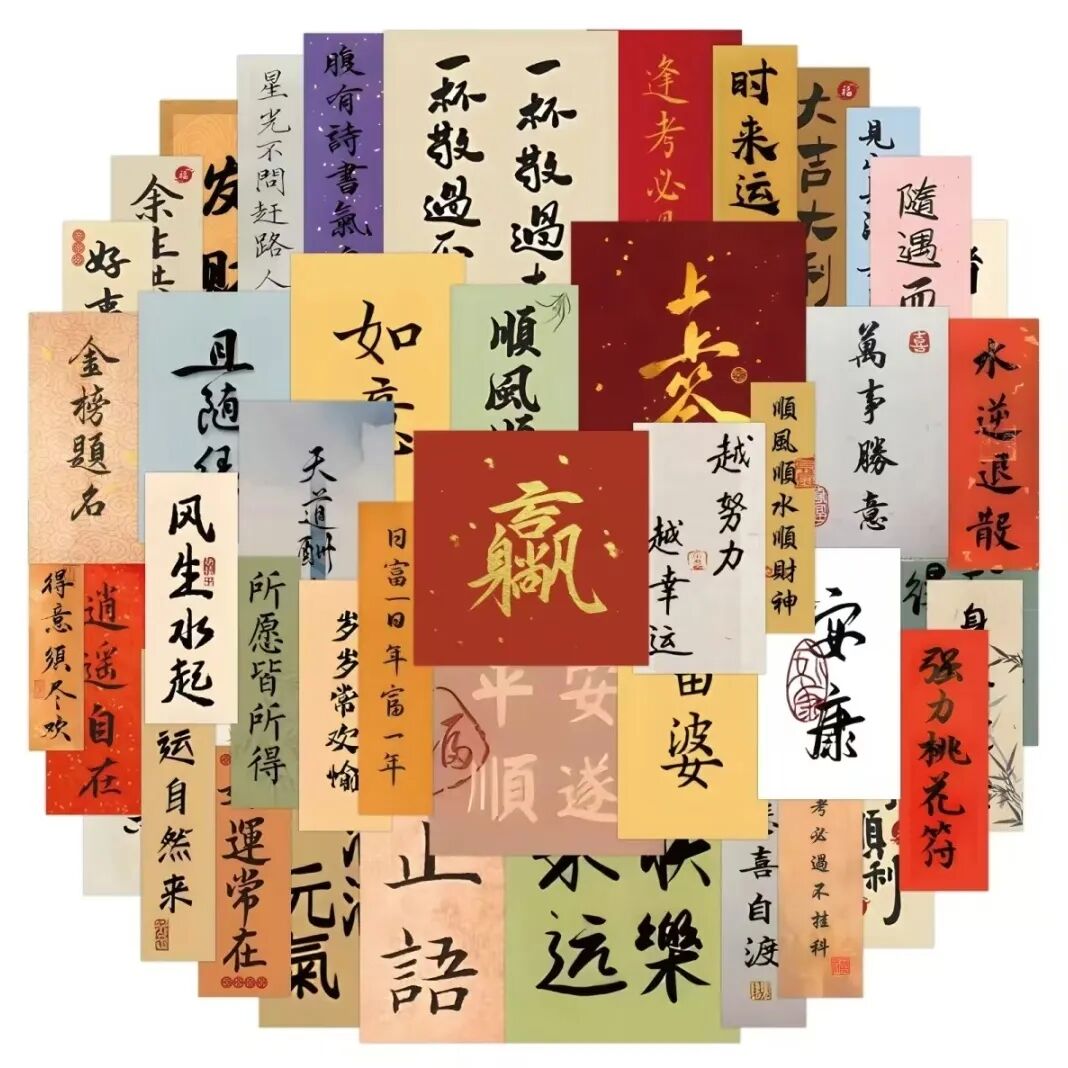 星光不問赶路人
腹有詩書氣
一杯敬過
一杯敬過
逢考必
时来运
大吉大利
福
見
隨遇而
发财
余
福
好事
金榜題名
且随
如意
順風順
上上簽
萬事勝意
喜
水逆退散
天道酬
順風順水順財神
越努力
越幸运
贏
风生水起
日富一日年富一年
所愿皆所得
岁岁常欢愉
得意須尽欢
逍遥自在
安康
强力桃花符
平安
順遂
福
婆
运自然来
運常在
元氣
止語
快樂
永远
喜自渡
考必過不挂科
順利